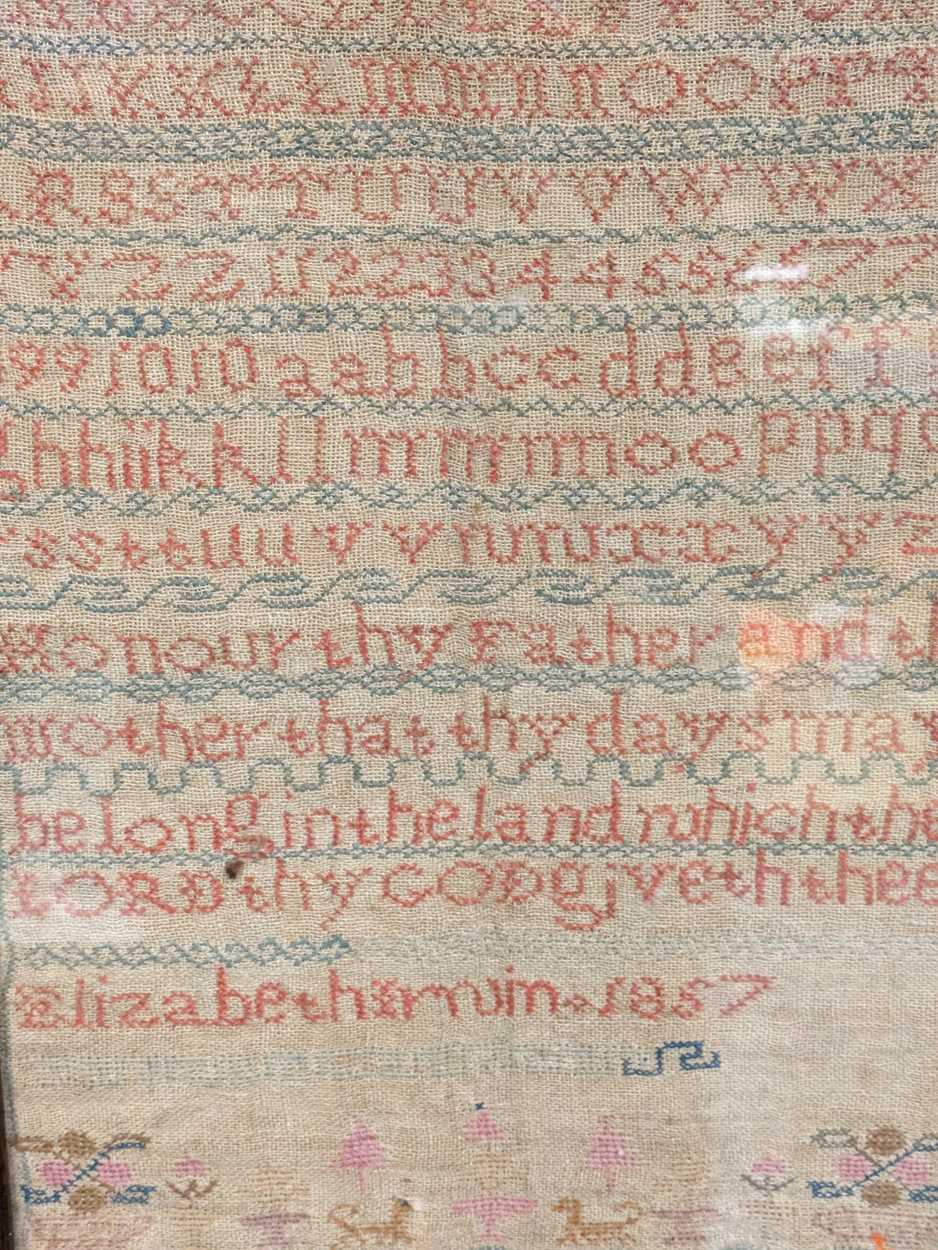 K K L L m m n n O O P P
R S S T T U U V V W W X
Y Z Z 1 1 2 2 3 3 4 4 5 5 6 6 7 7
9 9 10 10 a a b b c c d d e e f f
h h i i k k l l m m n n o o p p q
s s t t u u v v w w x x y y z
Honour thy Father and
mother that thy days may
be long in the land which the
LORD thy GOD giveth thee
Elizabeth 1857